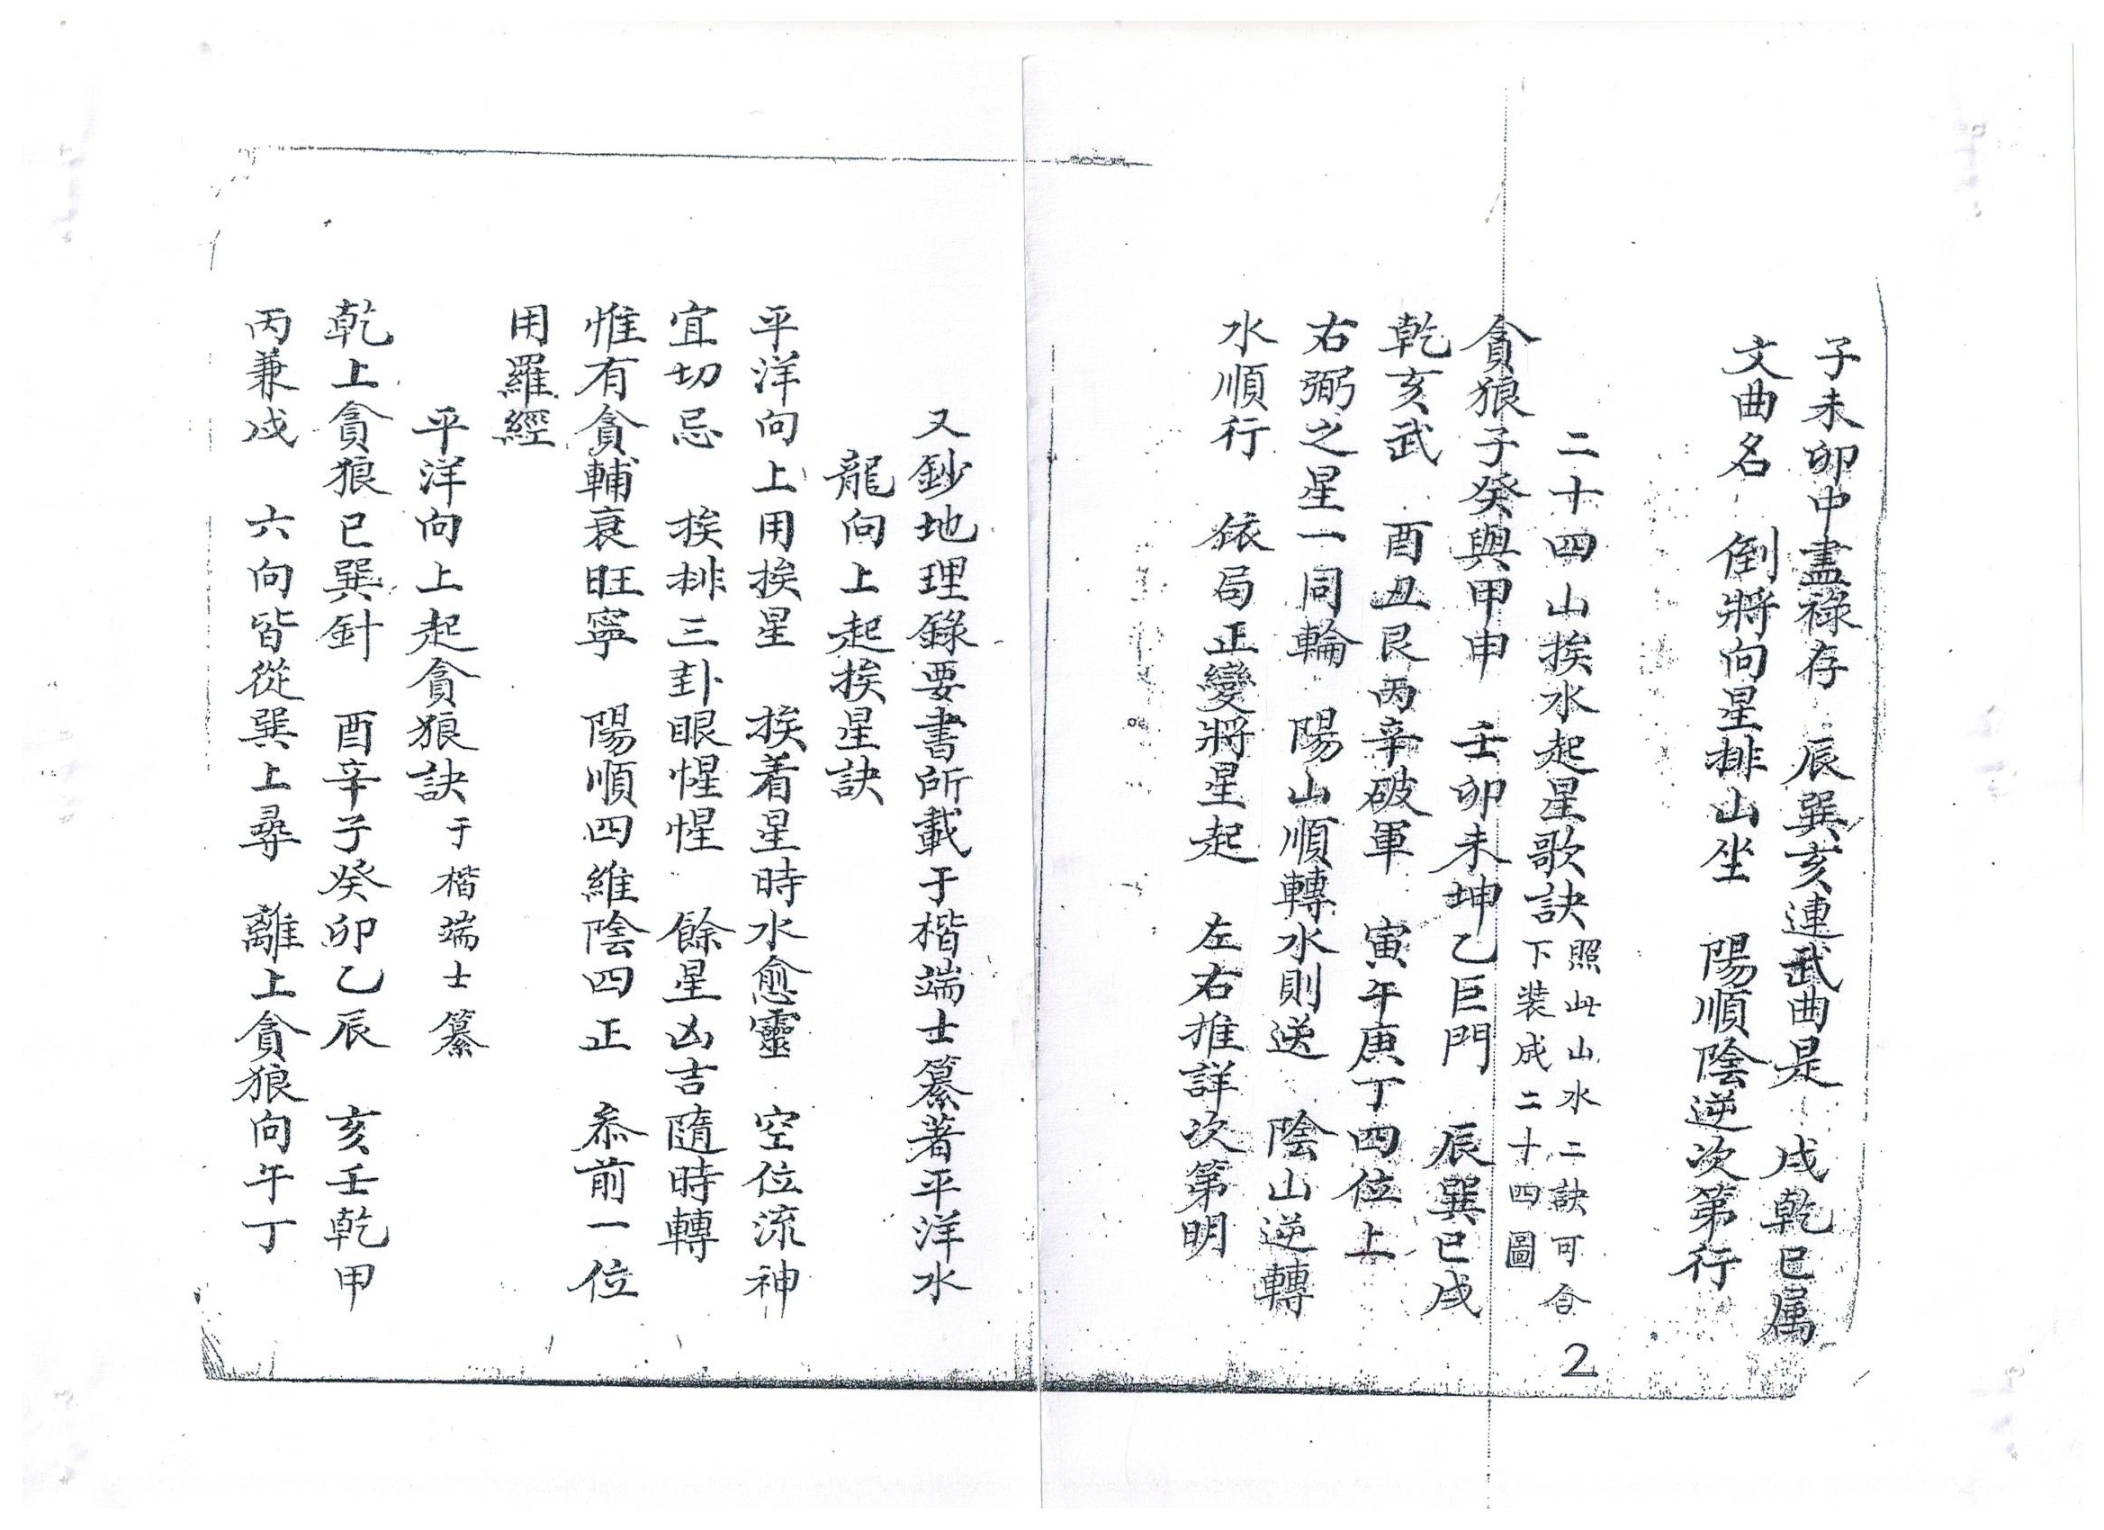 子未卯中盡祿存　辰巽亥連武曲是　戌乾巳属
文曲名　倒將向星排山坐　陽順陰逆次第行
二十四山挨水起星歌訣
照此山水二訣可合
下装成二十四圖
貪狼子癸與甲申　壬卯未坤乙巨門　辰巽巳戌
乾亥武　酉丑艮丙辛破軍　寅午庚丁四位上
右弼之星一同輪　陽山順轉水則逆　陰山逆轉
水順行　依局正變將星起　左右推詳次第明
2
又鈔地理錄要書所載于楷端士纂著平洋水
龍向上起挨星訣
平洋向上用挨星　挨着星時水愈靈　空位流神
宜切忌　挨排三卦眼惺惺　餘星凶吉隨時轉
惟有貪輔衰旺寧　陽順四維陰四正　叅前一位
用羅經
平洋向上起貪狼訣于楷端士纂
乾上貪狼巳巽針　酉辛子癸卯乙辰　亥壬乾甲
丙兼戌　六向皆從巽上尋　離上貪狼向午丁